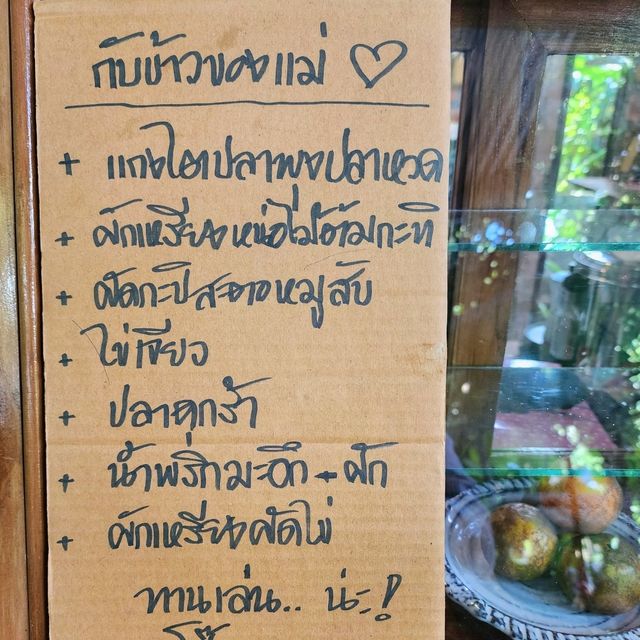 กับข้าวของแม่ ♡
+ แกงไตปลาพุงปลาหวด
+ ผักเหรียงหน่อไม้ต้มกะทิ
+ ผัดกะปิสะตอหมูสับ
+ ไข่เจียว
+ ปลาดุกร้า
+ น้ำพริกมะอึก + ผัก
+ ผักเหรียงผัดไข่
ทานเล่น.. น่ะ!